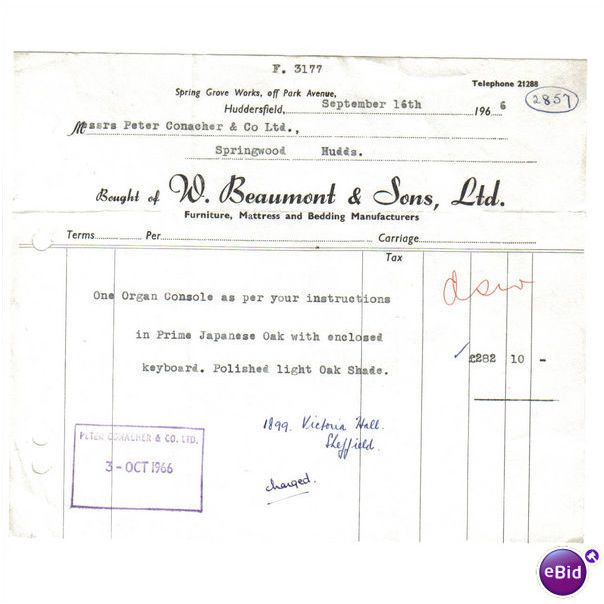 F. 3177
Telephone 21288
Spring Grove Works, off Park Avenue,
2857
Huddersfield, September 16th 1966
Messrs Peter Conacher & Co Ltd.,
Springwood Hudds.
Bought of W. Beaumont & Sons, Ltd.
Furniture, Mattress and Bedding Manufacturers
Terms Per Carriage
Tax
One Organ Console as per your instructions
in Prime Japanese Oak with enclosed
keyboard. Polished light Oak Shade. £282 10 -
1899. Victoria Hall.
Sheffield.
charged.
PETER CONACHER & CO. LTD.
3-OCT 1966
eBid